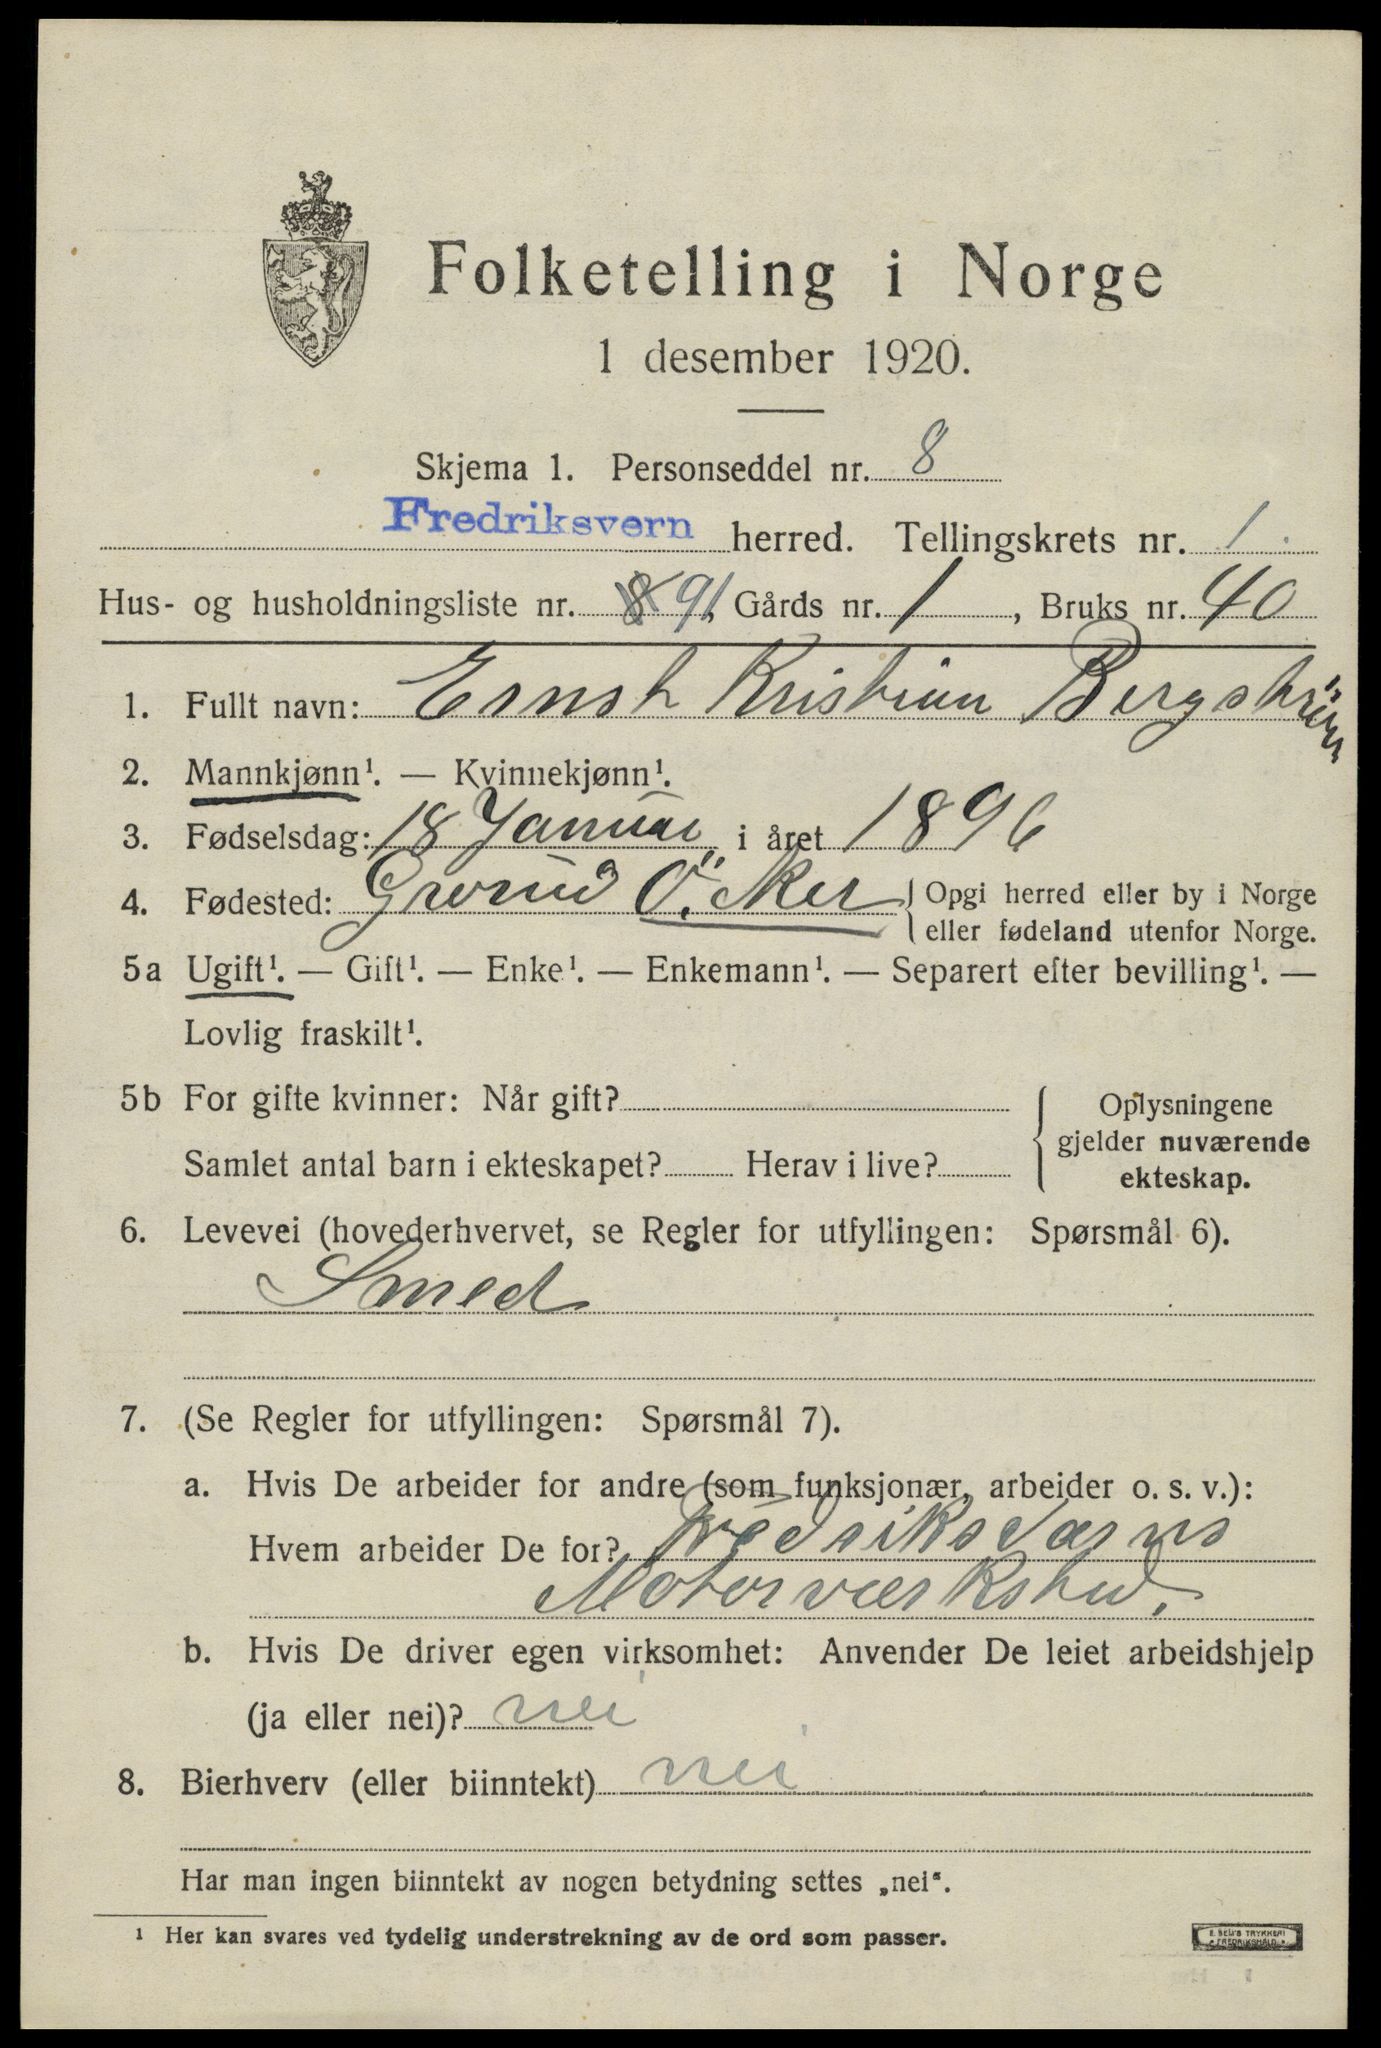 Folketelling i Norge
1 desember 1920.
Skjema 1. Personseddel nr. 8
Fredriksvern herred. Tellingskrets nr. 1.
Hus- og husholdningsliste nr. 8 91, Gårds nr. 1, Bruks nr. 40
1. Fullt navn: Ernst Kristian Bergström
2. Mannkjønn¹. — Kvinnekjønn¹.
3. Fødselsdag: 18 Januar i året 1896
4. Fødested: Grorud Ö. Aker { Opgi herred eller by i Norge
eller fødeland utenfor Norge.
5a Ugift¹. — Gift¹. — Enke¹. — Enkemann¹. — Separert efter bevilling¹. —
Lovlig fraskilt¹.
5b For gifte kvinner: Når gift?
Samlet antal barn i ekteskapet? Herav i live?
Oplysningene
gjelder nuværende
ekteskap.
6. Levevei (hovederhvervet, se Regler for utfyllingen: Spørsmål 6).
Smed
7. (Se Regler for utfyllingen: Spørsmål 7).
a. Hvis De arbeider for andre (som funksjonær, arbeider o. s. v.):
Hvem arbeider De for? Fredriksværns
Motorværksted.
b. Hvis De driver egen virksomhet: Anvender De leiet arbeidshjelp
(ja eller nei)? nei
8. Bierhverv (eller biinntekt) nei
Har man ingen biinntekt av nogen betydning settes „nei“.
¹ Her kan svares ved tydelig understrekning av de ord som passer.
E. SEM'S TRYKKERI
FREDRIKSHALD